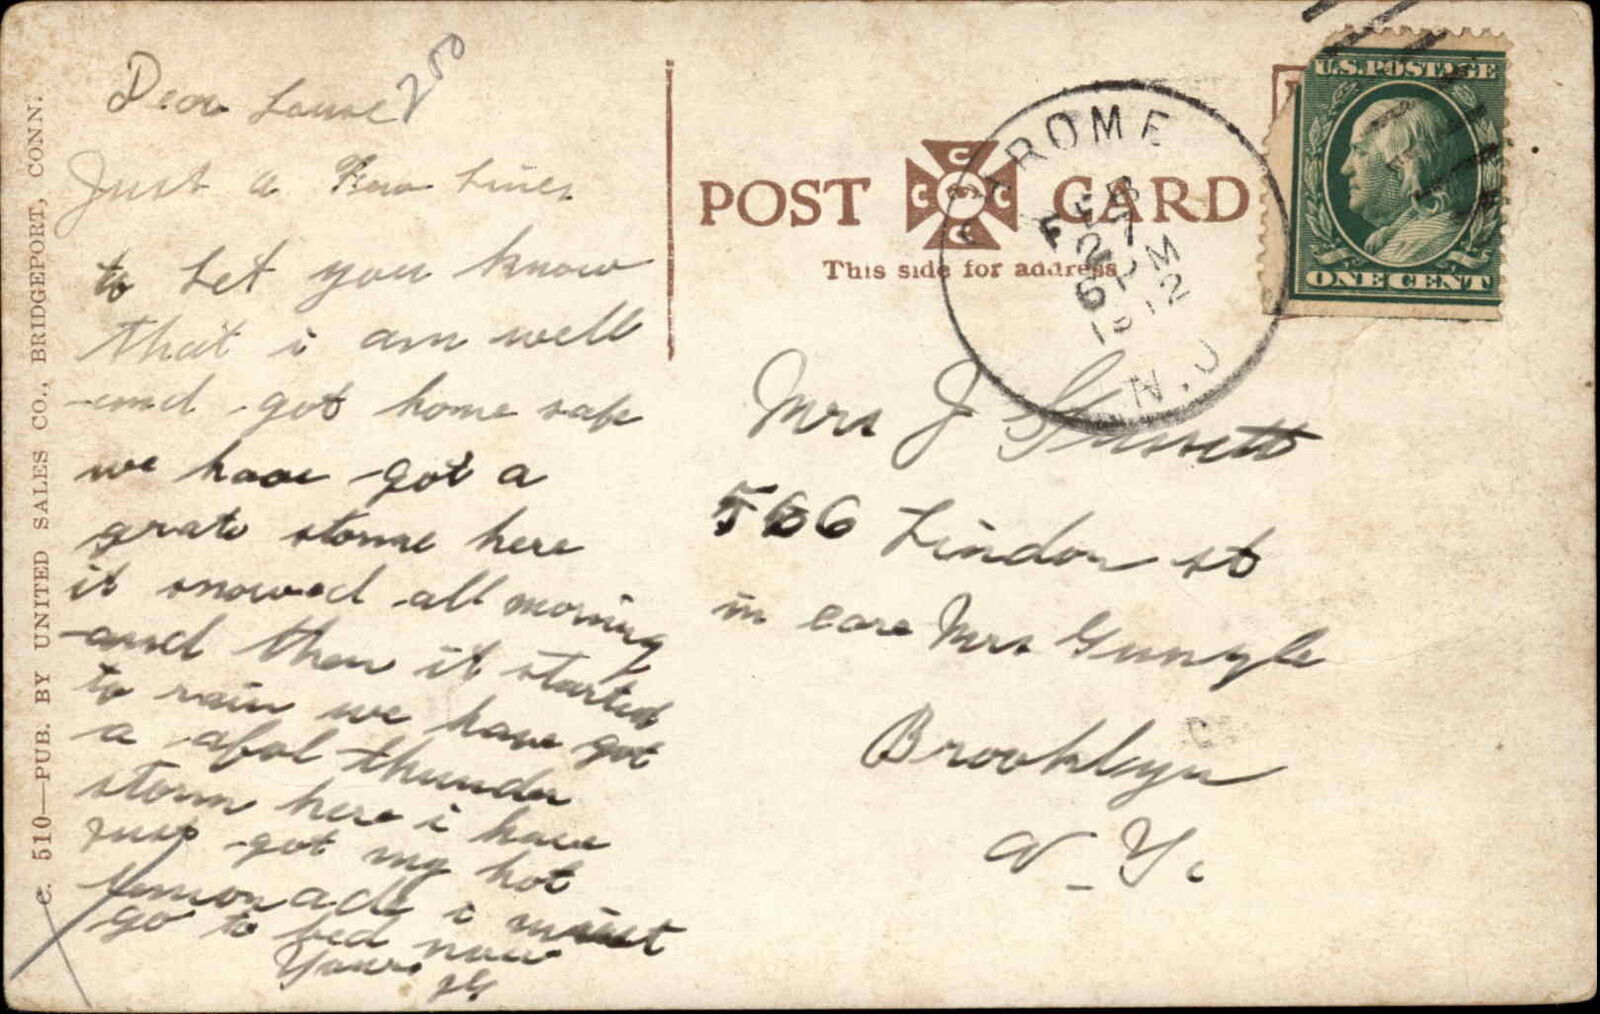 Dear
200
Just a Few Lines
to Let you know
that i am well
and got home safe
we have got a
grate storme here
it snowed all morning
and then it started
to rain we have got
a afol thunder
storm here i have
just got my hot
lemonade i must
go to bed now
Yours
C. 510—PUB. BY UNITED SALES CO., BRIDGEPORT, CONN.
POST CARD
C C C C
This side for address
ROME
FEB
27
6 PM
1912
N.J
U.S. POSTAGE
ONE CENT
Mrs J
566 Lindon st
in care Mrs
Brooklyn
N-Y.